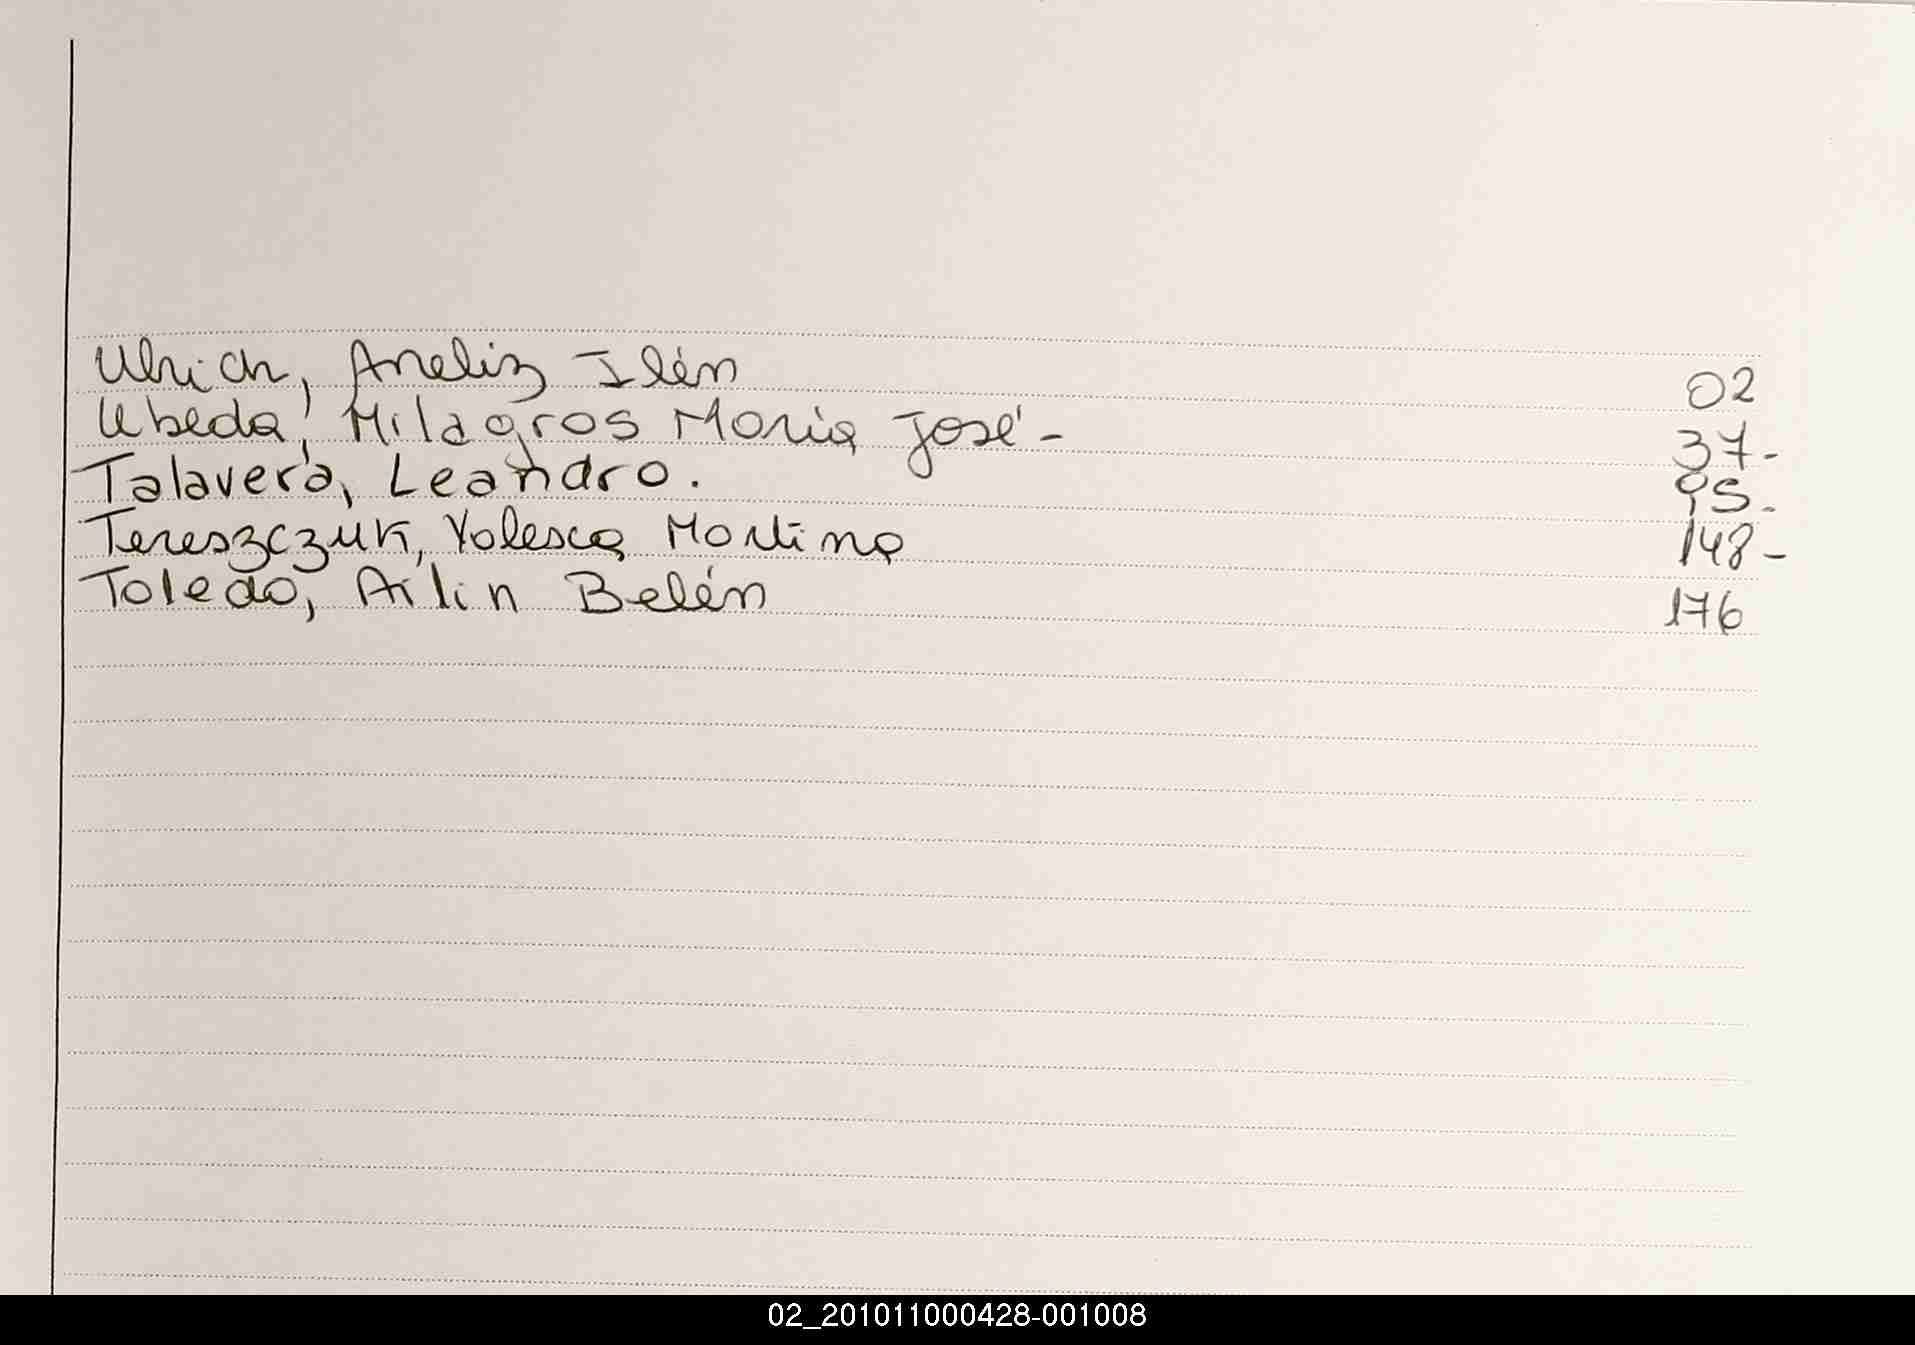 Ulrich, Aneliz Ilén 02
Ubeda, Milagros Maria José - 37-
Talavera, Leandro. 95-
Tereszczuk, Valesca Martina 148-
Toledo, Ailin Belén 176
02_201011000428-001008